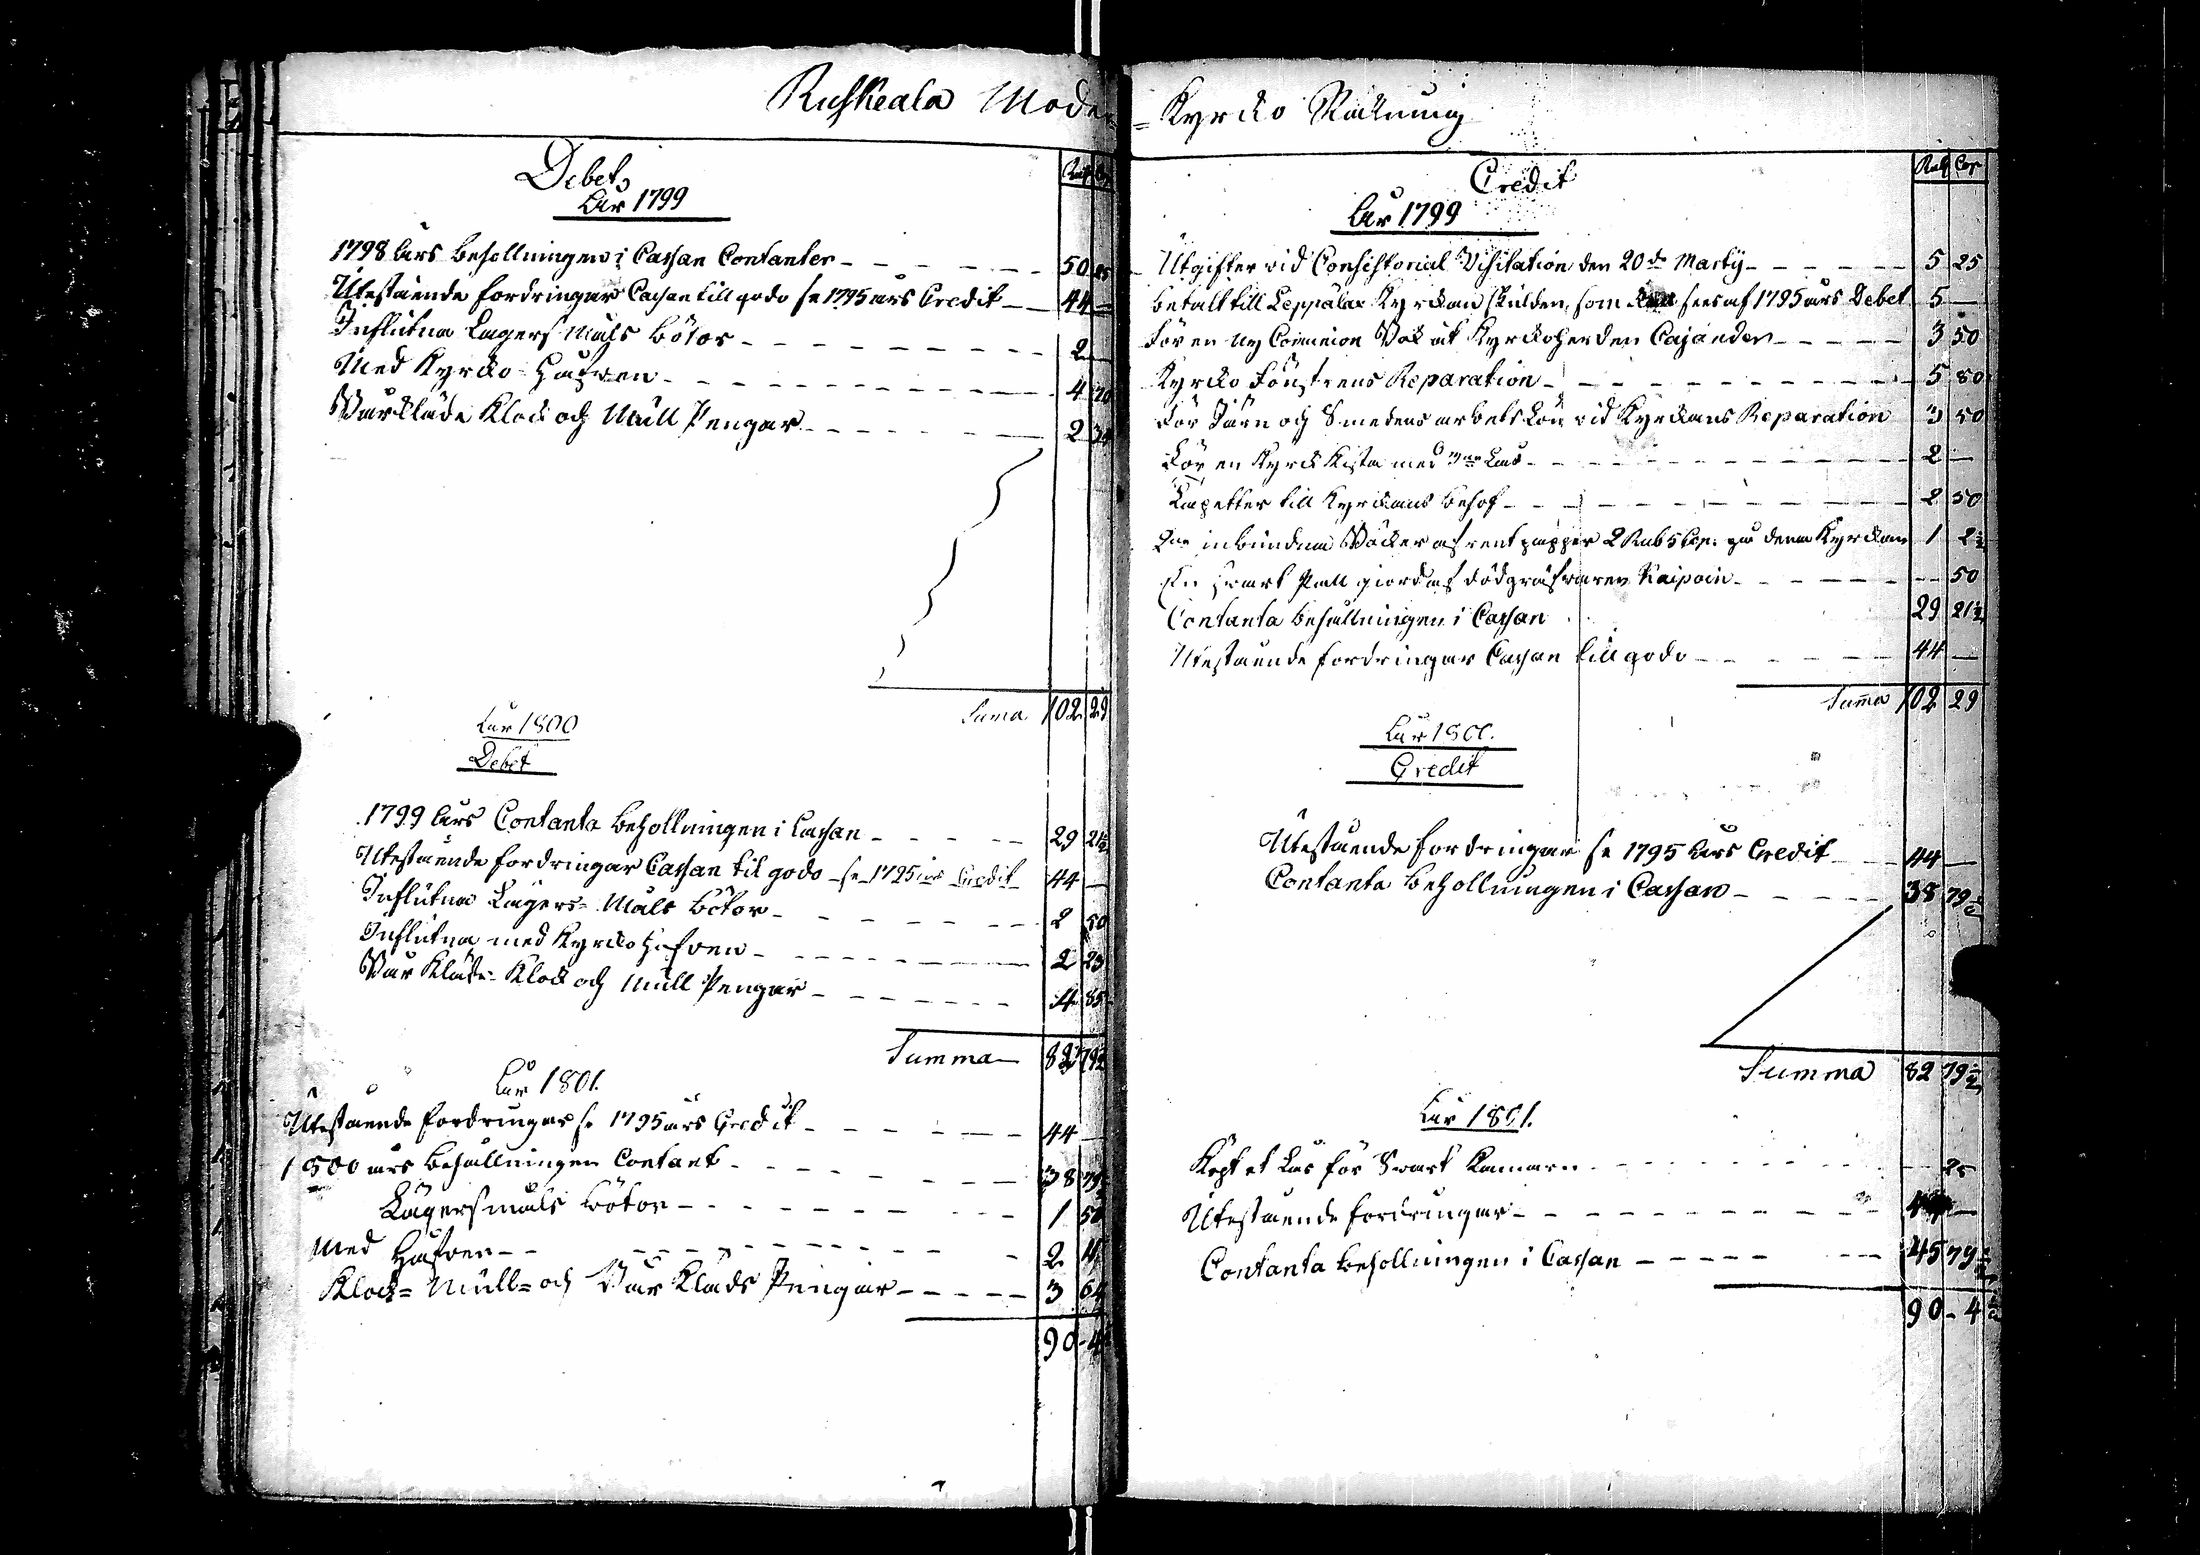 Ruskeala Moder
Debet
Rub Cop
Åhr 1799
1798 Års behollningen i Cassan Contanter 50 85
Utestående fordringar Cassan till godo se 1795 års Credit 44 —
Influtna Lägersmåls böter 2 —
Med Kyrko-Håfven 4 20
Vårkläde Klock och Mull Pengar 2 34
Suma 102 29
Åhr 1800
Debet
1799 Års Contanta behollningen i Cassan 29 21½
Utestående fordringar Cassan til godo se 1795 års Credit 44 —
Influtna Lägers-Måls böter 2 50
Influtna med Kyrko Håfven 2 23
Vår Kläde- Klock och Mull Pengar 4 85
Summa 82 79½
Åhr 1801.
Utestående fordringar se 1795 års Credit 44 —
1800 års behållningen Contant 38 79½
Lägersmåls böter 1 50
Med Håfven 2
Klock- Mull- och Vår Kläds Pengar 3 64
90 4½
= Kyrcko Räkning
Credit
Rub Cop
Åhr 1799
Utgifter vid Consistorial Visitation den 20de Martij 5 25
betalt till Leppälax Kyrckan skulden, som sees af 1795 års Debet 5 —
För en Ny Communion Bok åt Kyrckoherden Cajander 3 50
Kyrcko Fönstrens Reparation 5 80
För Järn och Smedens arbets Lön vid Kyrckans Reparation 3 50
För en Kyrck Kista med Lås 2 —
Tapetter till Kyrckans behof 2 50
inbundna Böcker af rent papper 2 Rub 5 Cop. på dem Kyrckan 1 2½
En svart Pall giord af dödgräfvaren Kaipain 50
Contanta behållningen i Cassan 29 21½
Utestående fordringar Cassan till godo 44 —
Summa 102 29
Åhr 1800.
Credit
Utestående fordringar se 1795 Års Credit 44 —
Contanta behollningen i Cassan 38 79½
Summa 82 79½
Åhr 1801.
Köpt et Lås för Swart Kamarn 25
Utestående fordringar 44 —
Contanta behollningen i Cassan 45 79½
90 - 4½